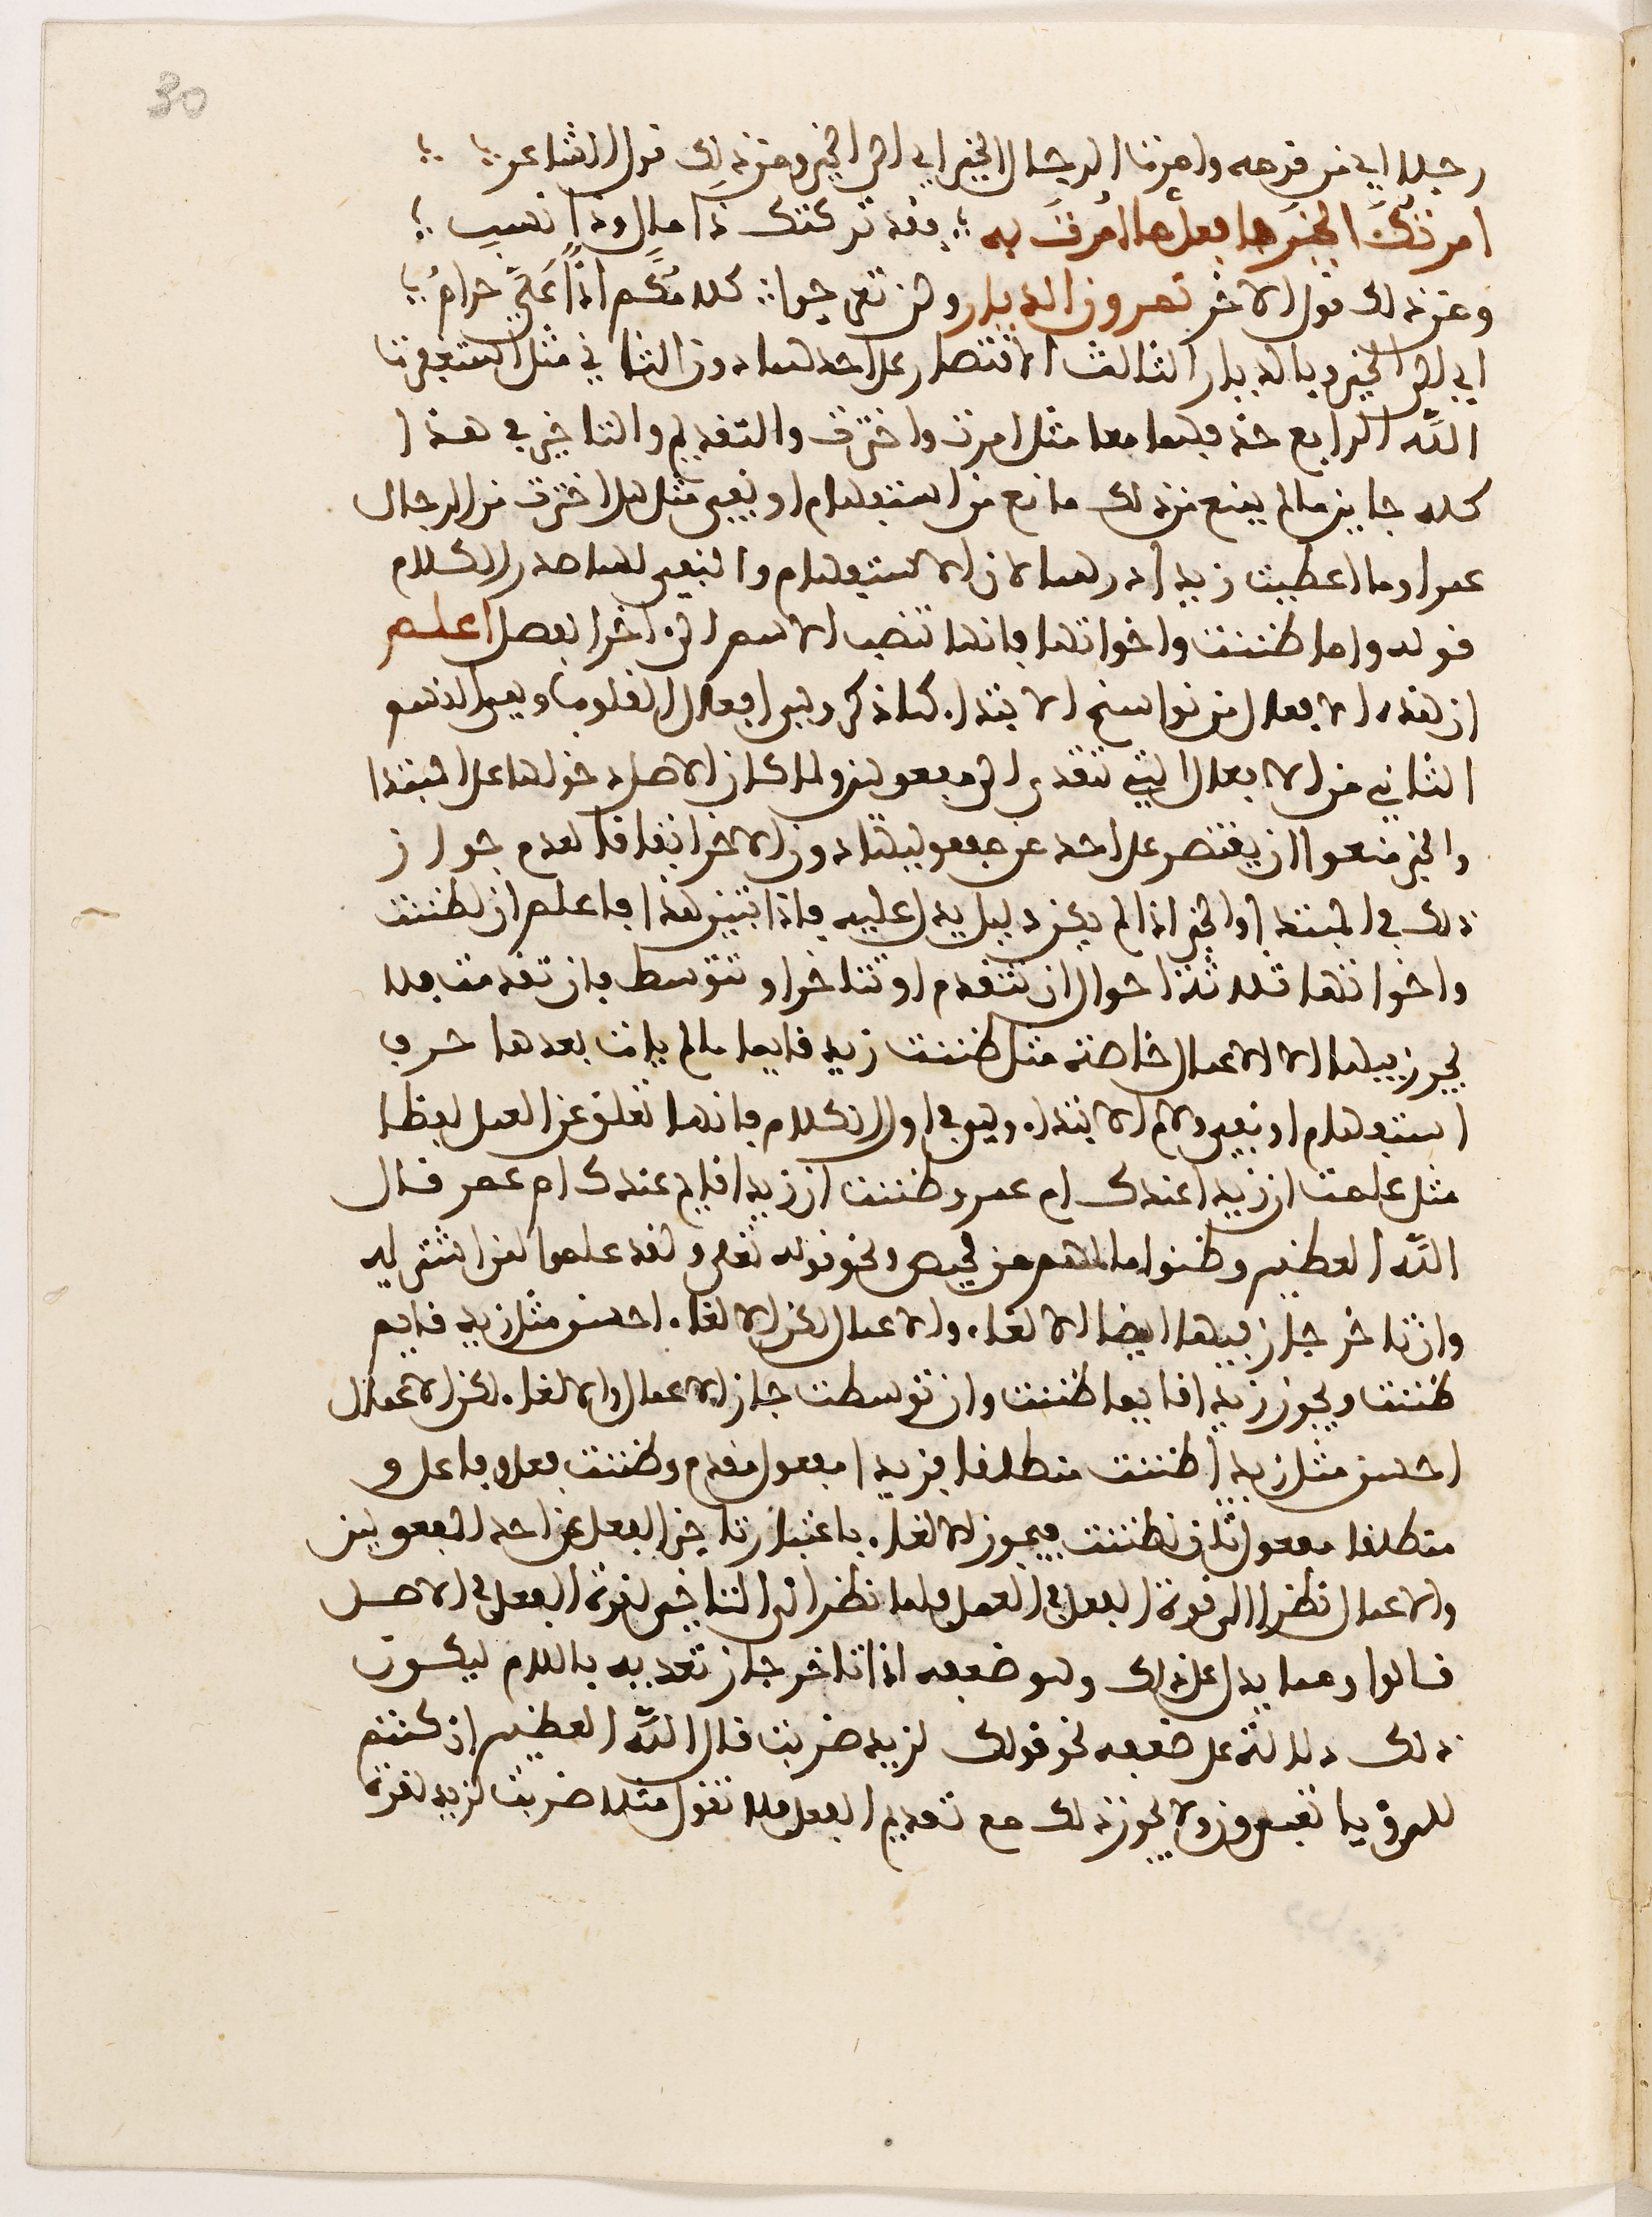 30
رجلا اي من قومه وامرنا الرجال الخير اي الى الخير ومن ذلك قول الشاعر
امرتُكَ الخيرَ ها فعل ها امرتَ به فقد تركتك ذا مال وذا نسب
ومن ذلك قول الاخر تمرون الديار ولن تعوجوا كلامُكم اذًا عَلَيَّ حرامُ
اي الى الخير وبالديار الثالث الاقتصار على احدهما دون الثاني مثل استغفرنا
اللَّه الرابع حذفهما معا مثل امرت واخترت والتقديم والتاخير في هذا
كله جايز ما لم يمنع من ذلك مانع من استفهام او نفي مثل هل اخترت من الرجال
عمرا وما اعطيت زيدا درهما لان الاستفهام والنفي لهما صدر الكلام
قوله واما ظننت واخواتها فانها تنصب الاسم الى اخر الفصل اعلم
ان هذه الافعال من نواسخ الابتداء كما ذكر وهي افعال القلوب وهي القسم
الثاني من الافعال التي تتعدى الى مفعولين ولما كان الاصل دخولها على المبتدا
والخبر منعوا ان يقتصر على احد من مفعوليها دون الاخر اتفاقا لعدم جواز
ذلك في المبتدا والخبر اذا لم يكن دليل يدل عليه فاذا تبين هذا فاعلم ان لظننت
واخواتها ثلاثة احوال ان تتقدم او تتاخر او تتوسط فان تقدمت فلا
يجوز فيها الا الاعمال خاصة مثل ظننت زيد قايما ما لم يات بعدها حرف
استفهام او نفي ولام الابتداء وهو في اول الكلام فانها تعلق عن العمل لفظا
مثل علمت ازيد اعندك ام عمر وظننت ازيد اقايم عندك ام عمر قال
اللَّه العظيم وظنوا ما لهم من محيص ونحو قوله تعلى ولقد علموا لمن اشتريه
وان تاخر جاز فيها ايضا الالغاء والاعمال لكن الالغاء احسن مثل زيد قايم
ظننت ويجوز زيدا قايما ظننت وان توسطت جاز الاعمال والالغاء لكن الاعمال
احسن مثل زيدا ظننت منطلقا فزيدا مفعول مقدم وظننت فعل وفاعل و
منطلقا مفعول ثان لظننت فيجوز الالغاء باعتبار تاخير الفعل عن احد المفعولين
والاعمال نظرا الى قوة الفعل في العمل ولما نظر الى التاخير لقوة الفعل في الاصل
قالوا ومما يدل على ذلك وهو ضعفه اذا تاخر جاز تعديه باللام ليكون
ذلك دلالة على ضعفه نحو قولك لزيد ضربت قال اللَّه العظيم ان كنتم
للرؤيا تعبرون ولا يجوز ذلك مع تقديم الفعل فلا تقول مثلا ضربت لزيد لقوة